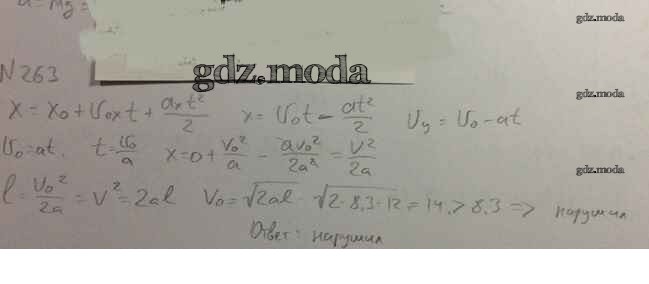 a = mg =
gdz.moda
N 263
gdz.moda
gdz.moda
x = x₀ + υ₀ₓt + aₓt²/2   x = υ₀t - at²/2   υᵧ = υ₀ - at
υ₀ = at.   t = υ₀/a   x = 0 + v₀²/a - av₀²/2a² = v²/2a
gdz.moda
l = υ₀²/2a = v² = 2al   v₀ = √2al · √2·8,3·12 = 14 > 8,3 => нарушил
Ответ: нарушил